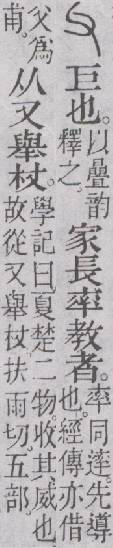 巨也。以疊韵釋之。家長率教者。率同䢦。先導也。經傳亦借
父為甫。从又舉杖。學記曰。夏楚二物。收其威也。故從又舉杖。扶雨切。五部。